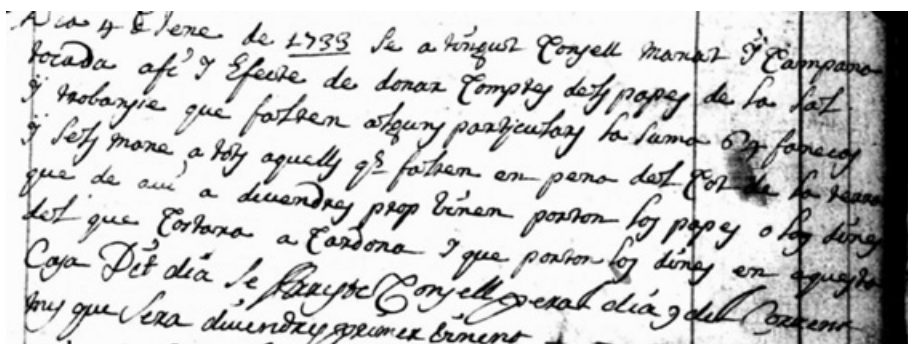 Dia 4 de Jene de 1733 se a tingut Consell manat ÿ Campana
tocada afi ÿ Efecte de donar Comptes dels papes de la sal
ÿ trobantse que faltren alguns particulars la suma 64 fanecas
ÿ sels mane a tots aquells qe faltren en pena del Cot de la terra
que de aui a divendres prop vinen porton los papes o los dines
del que Costara a Cardona ÿ que porton los dines en aquesta
Casa Dit dia se Consell peral dia 9 del Corrent
mes que sera divendres primer vinent